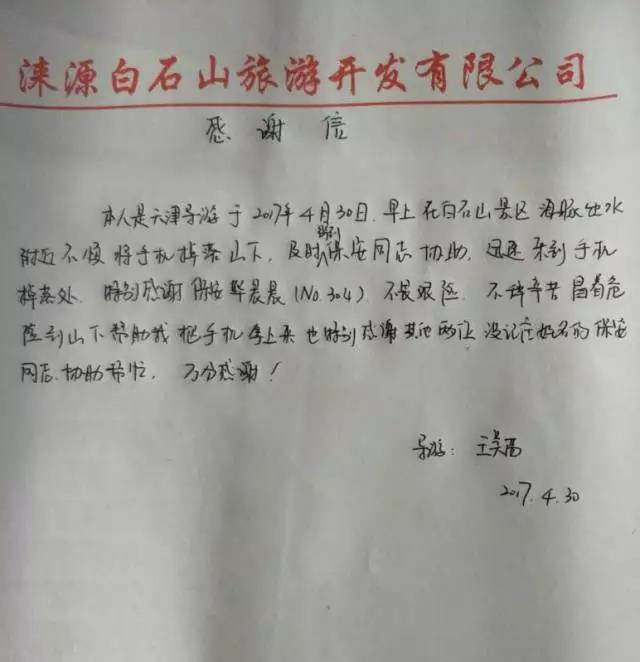 涞源白石山旅游开发有限公司
感谢信
本人是天津导游于2017年4月30日.早上在白石山景区海豚出水
附近不慎将手机掉落山下,及时得到保安同志协助,迅速来到手机
掉落处.特别感谢保安 晨晨(No.304).不畏艰险.不辞辛苦冒着危
险到山下帮助我把手机拿上来也特别感谢其他两位没记住姓名的保安
同志.协助帮忙.万分感谢!
导游:王
2017.4.30